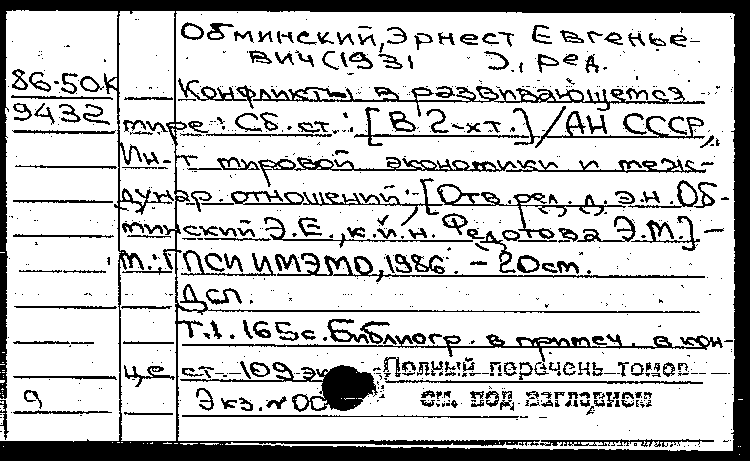 Обминский, Эрнест Евгенье-
вич (1931 ), ред.
86-50К
Конфликты в развивающемся
9432
мире: Сб. ст.: [В 2-хт.] / АН СССР,
Ин-т мировой экономики и меж-
дунар. отношений; [Отв. ред. д. э. н. Об-
минский Э. Е., к. и. н. Федотова Э. М.] -
М.: ГПСИ ИМЭМО, 1986. - 20 см.
Дсп.
Т. 1. 165 с. Библиогр. в примеч. в кон-
це ст. 109 эк
Полный перечень томов
9
Экз. № 00
см. под заглавием